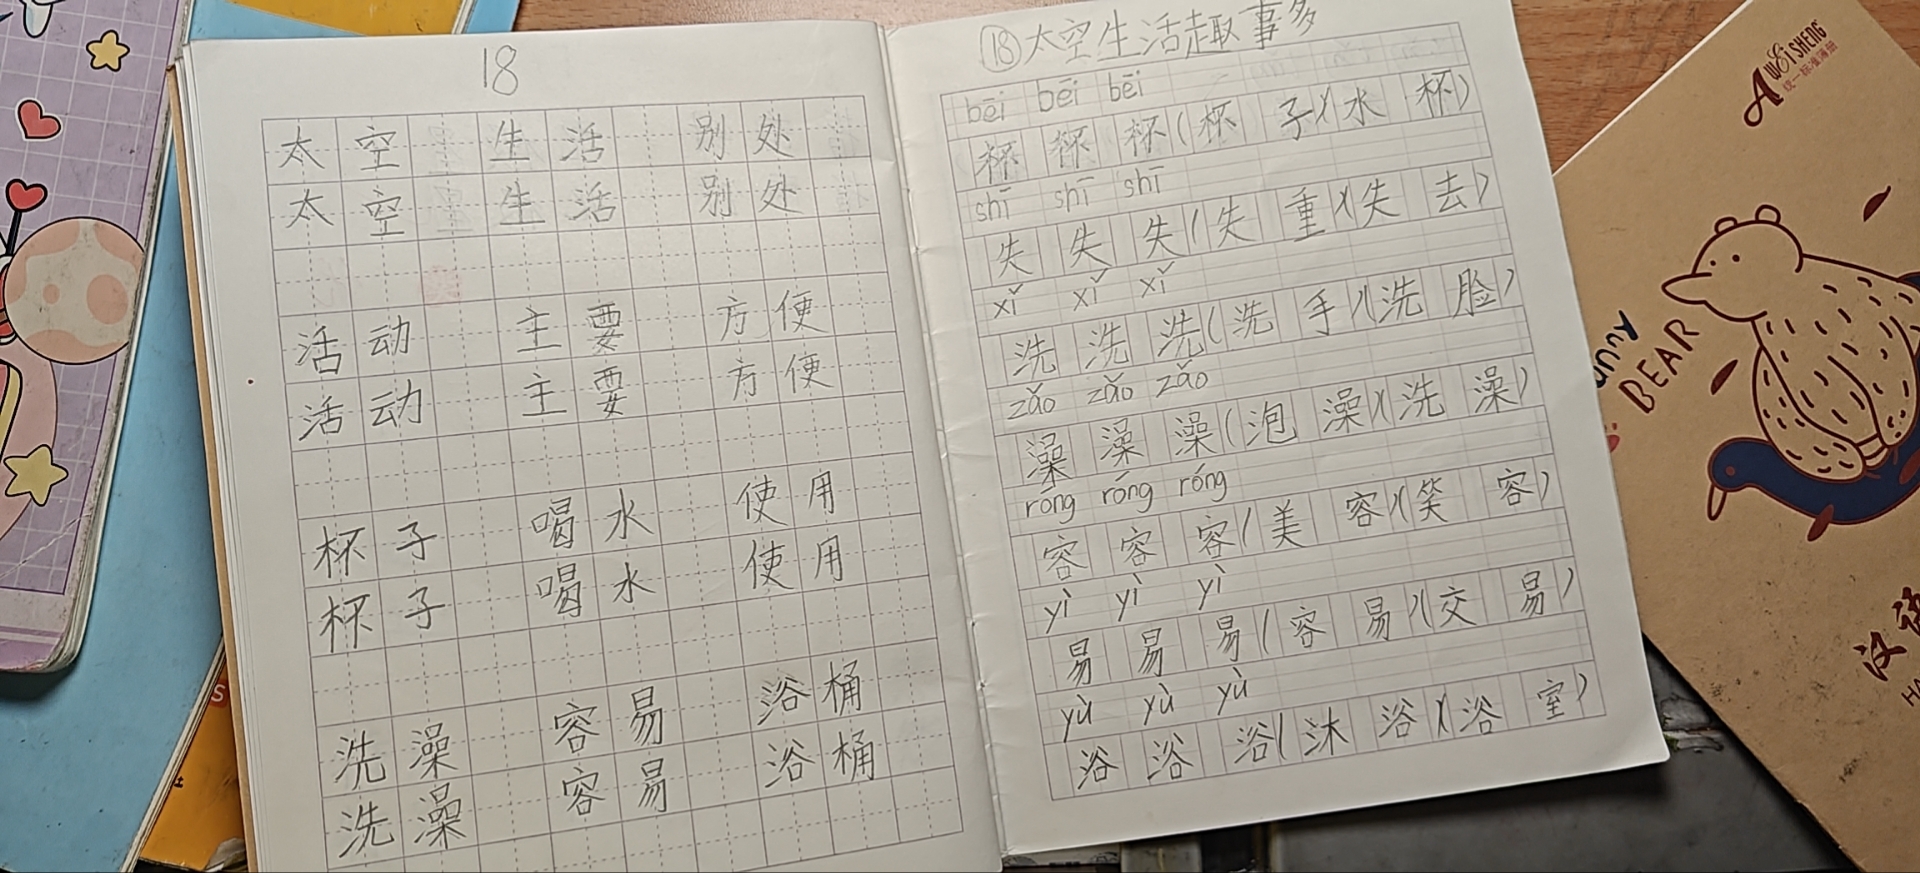 18
太空 生活 别处
太空 生活 别处
活动 主要 方便
活动 主要 方便
杯子 喝水 使用
杯子 喝水 使用
洗澡 容易 浴桶
洗澡 容易 浴桶
⑱太空生活趣事多
bēi bēi bēi
杯 杯 杯(杯子)(水杯)
shī shī shī
失 失 失(失重)(失去)
xǐ xǐ xǐ
洗 洗 洗(洗手)(洗脸)
zǎo zǎo zǎo
澡 澡 澡(泡澡)(洗澡)
róng róng róng
容 容 容(美容)(笑容)
yì yì yì
易 易 易(容易)(交易)
yù yù yù
浴 浴 浴(沐浴)(浴室)
AWEISHENG
统一标准簿册
BEAR
汉